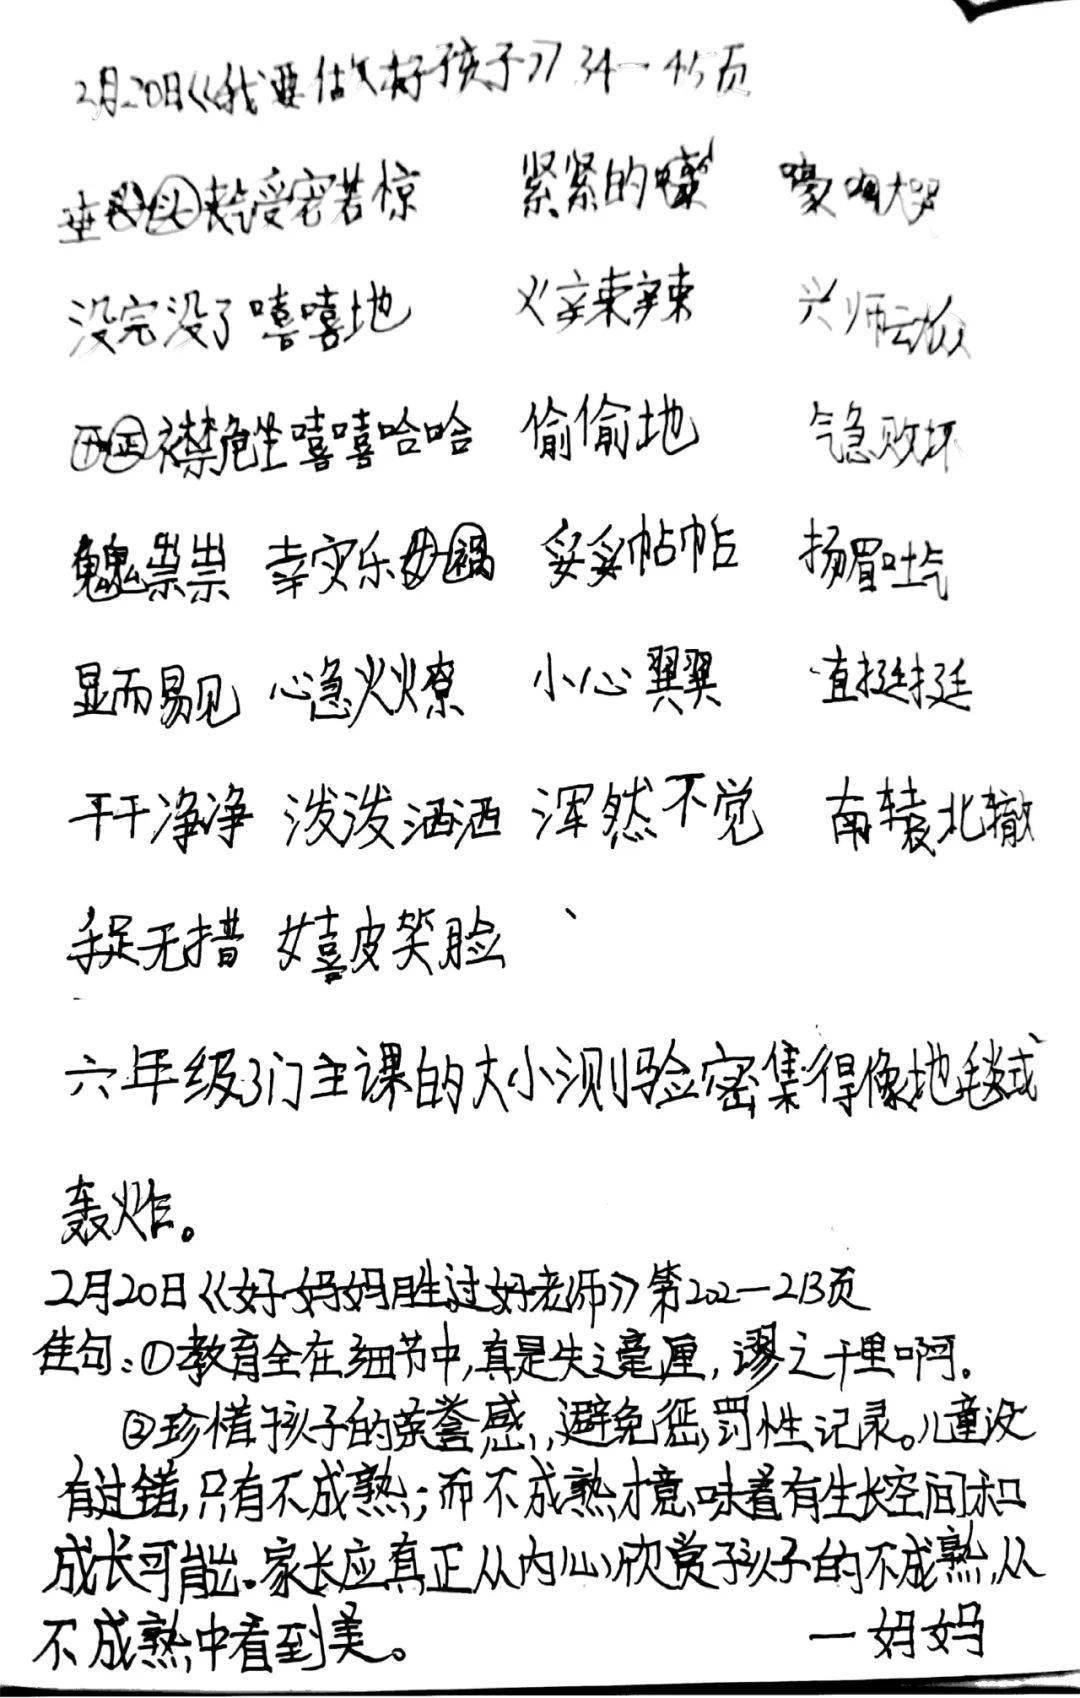 2月20日《我要做好孩子》34一45页
受宠若惊 紧紧的 嚎啕大哭
没完没了 嘻嘻地 火辛束辛束 兴师动众
禁危坐 嘻嘻哈哈 偷偷地 气急败坏
鬼祟祟 幸灾乐 祸 妥妥帖帖 扬眉吐气
显而易见 心急火燎 小心翼翼 直挺挺
干干净净 泼泼洒洒 浑然不觉 南辕北辙
手足无措 嬉皮笑脸
六年级3门主课的大小测验密集得像地毯式
轰炸。
2月20日《好妈妈胜过好老师》第202一213页
佳句:①教育全在细节中,真是失之毫厘,谬之千里啊。
②珍惜孩子的荣誉感,避免惩罚性记录。儿童没
有过错,只有不成熟;而不成熟才意味着有生长空间和
成长可能。家长应真正从内心欣赏孩子的不成熟,从
不成熟中看到美。 一妈妈